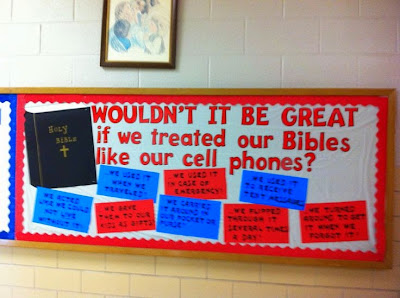 HOLY
BIBLE
WOULDN'T IT BE GREAT
if we treated our Bibles
like our cell phones?
...WE USED IT
WHEN WE
TRAVELED?
...WE USED IT
IN CASE OF
EMERGENCY?
...WE USED IT
TO RECEIVE
TEXT MESSAGES?
...WE ACTED
LIKE WE COULD
NOT LIVE
WITHOUT IT?
...WE GAVE
THEM TO OUR
KIDS AS GIFTS?
...WE CARRIED
IT AROUND IN
OUR POCKET OR
PURSE?
...WE FLIPPED
THROUGH IT
SEVERAL TIMES
A DAY?
...WE TURNED
AROUND TO GET
IT WHEN WE
FORGOT IT?